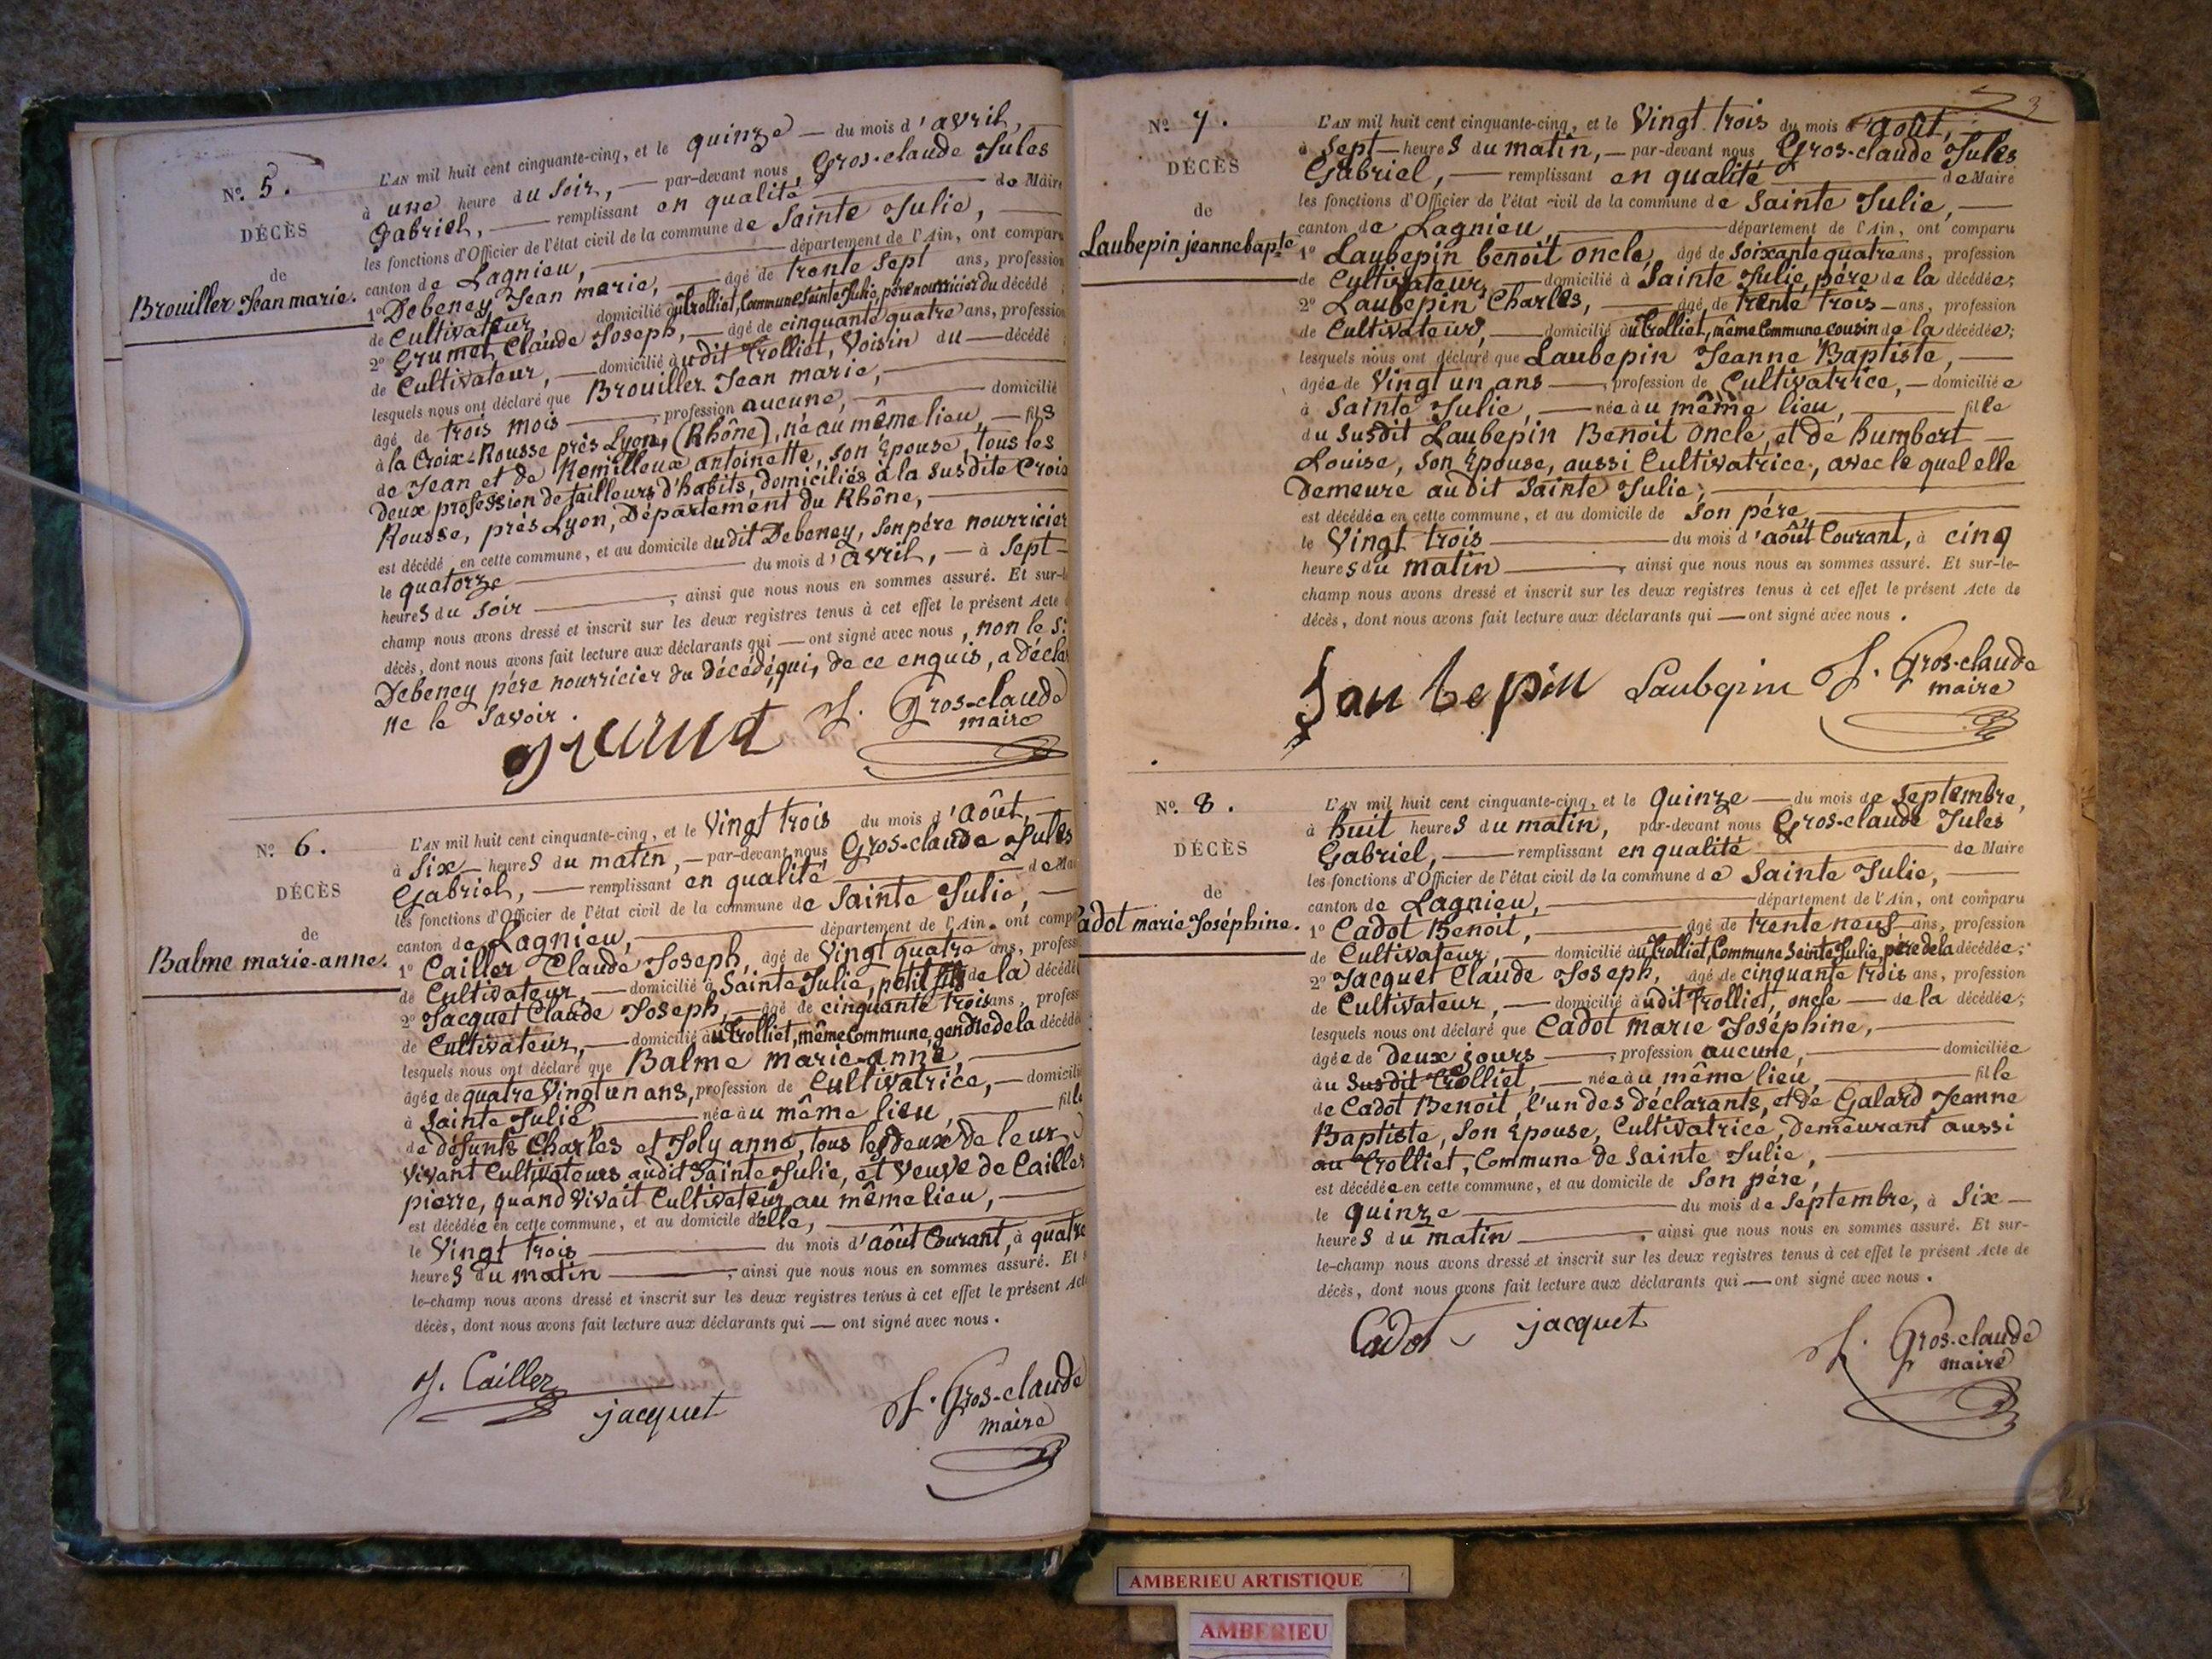 Nº 5.
DÉCÈS
de
Brouiller Jean marie.
L'AN mil huit cent cinquante-cinq, et le quinze — du mois d'avril,
à une heure du soir, — par-devant nous, Gros-claude Jules
Gabriel, — remplissant en qualité — de Maire
les fonctions d'Officier de l'état civil de la commune de Sainte Julie, —
canton de Lagnieu, — département de l'Ain, ont comparu
1º Debeney Jean marie, — âgé de trente sept ans, profession
de Cultivateur domicilié au Trolliet, Commune Sainte Julie, père nourricier du décédé
2º Grumet Claude Joseph, — âgé de cinquante quatre ans, profession
de Cultivateur, — domicilié audit Trolliet, Voisin du — décédé
lesquels nous ont déclaré que Brouiller Jean marie, —
âgé de trois mois —, profession aucune, — domicilié
à la Croix-Rousse près Lyon, (Rhône), né au même lieu, — fils
de Jean et de Remilleux antoinette, son Epouse, tous les
deux profession de tailleurs d'habits, domiciliés à la susdite Croix
Rousse, près Lyon, Département du Rhône, —
est décédé en cette commune, et au domicile dudit Debeney, son père nourricier
le quatorze — du mois d'avril, — à sept —
heures du soir —, ainsi que nous nous en sommes assuré. Et sur-le
champ nous avons dressé et inscrit sur les deux registres tenus à cet effet le présent Acte
décès, dont nous avons fait lecture aux déclarants qui — ont signé avec nous, non le s.
Debeney père nourricier du décédé, qui, de ce enquis, a déclaré
ne le savoir.
grumet J. Gros-claude
maire
Nº 6.
DÉCÈS
de
Balme marie-anne.
L'AN mil huit cent cinquante-cinq, et le Vingt trois du mois d'août,
à six — heures du matin, — par-devant nous Gros-claude Jules
Gabriel, — remplissant en qualité — de Maire
les fonctions d'Officier de l'état civil de la commune de Sainte Julie, —
canton de Lagnieu, — département de l'Ain, ont comparu
1º Cailler Claude Joseph, âgé de Vingt quatre ans, profession
de Cultivateur, — domicilié à Sainte Julie, petit fils de la décédée
2º Jacquet Claude Joseph, — âgé de cinquante trois ans, profession
de Cultivateur, — domicilié au Trolliet, même Commune, gendre de la décédée
lesquels nous ont déclaré que Balme marie-anne, —
âgée de quatre Vingt un ans, profession de Cultivatrice, — domiciliée
à Sainte Julie, — née au même lieu, — fille
de défunts Charles et Joly anne, tous les deux de leur
vivant Cultivateurs audit Sainte Julie, et veuve de Cailler
pierre, quand vivait Cultivateur au même lieu, —
est décédée en cette commune, et au domicile d'elle, —
le Vingt trois — du mois d'août Courant, à quatre
heures du matin —, ainsi que nous nous en sommes assuré. Et sur-
le-champ nous avons dressé et inscrit sur les deux registres tenus à cet effet le présent Acte
décès, dont nous avons fait lecture aux déclarants qui — ont signé avec nous.
J. Cailler
jacquet
J. Gros-claude
maire
3
Nº 7.
DÉCÈS
de
Laubepin jeanne bapte
L'AN mil huit cent cinquante-cinq, et le Vingt trois du mois d'août,
à sept — heures du matin, — par-devant nous Gros-claude Jules
Gabriel, — remplissant en qualité — de Maire
les fonctions d'Officier de l'état civil de la commune de Sainte Julie, —
canton de Lagnieu, — département de l'Ain, ont comparu
1º Laubepin benoit oncle, âgé de soixante quatre ans, profession
de Cultivateur, — domicilié à Sainte Julie, père de la décédée;
2º Laubepin Charles, — âgé de trente trois — ans, profession
de Cultivateur, — domicilié au Trolliet, même Commune, cousin de la décédée;
lesquels nous ont déclaré que Laubepin Jeanne Baptiste, —
âgée de Vingt un ans —, profession de Cultivatrice, — domiciliée
à Sainte Julie, — née au même lieu, — fille
du susdit Laubepin Benoit oncle, et de humbert —
Louise, son Epouse, aussi Cultivatrice, avec lequel elle
Demeure audit Sainte Julie; —
est décédée en cette commune, et au domicile de son père, —
le Vingt trois — du mois d'août Courant, à cinq
heures du matin —, ainsi que nous nous en sommes assuré. Et sur-le-
champ nous avons dressé et inscrit sur les deux registres tenus à cet effet le présent Acte de
décès, dont nous avons fait lecture aux déclarants qui — ont signé avec nous.
Laubepin Laubepin J. Gros-claude
maire
Nº 8.
DÉCÈS
de
Cadot marie Joséphine.
L'AN mil huit cent cinquante-cinq, et le quinze — du mois de septembre,
à huit heures du matin, par-devant nous Gros-claude Jules
Gabriel, — remplissant en qualité — de Maire
les fonctions d'Officier de l'état civil de la commune de Sainte Julie, —
canton de Lagnieu, — département de l'Ain, ont comparu
1º Cadot Benoit, — âgé de trente neuf — ans, profession
de Cultivateur, — domicilié au Trolliet, Commune Sainte Julie, père de la décédée;
2º Jacquet Claude Joseph, âgé de cinquante trois ans, profession
de Cultivateur, — domicilié audit Trolliet, oncle — de la décédée;
lesquels nous ont déclaré que Cadot marie Joséphine, —
âgée de deux jours —, profession aucune, — domiciliée
au susdit Trolliet, — née au même lieu, — fille
de Cadot Benoit, l'un des déclarants, et de Galard Jeanne
Baptiste, son Epouse, Cultivatrice, Demeurant aussi
au Trolliet, Commune de Sainte Julie, —
est décédée en cette commune, et au domicile de son père,
le quinze — du mois de septembre, à six —
heures du matin —, ainsi que nous nous en sommes assuré. Et sur-
le-champ nous avons dressé et inscrit sur les deux registres tenus à cet effet le présent Acte de
décès, dont nous avons fait lecture aux déclarants qui — ont signé avec nous.
Cadot jacquet
J. Gros-claude
maire
AMBERIEU ARTISTIQUE
AMBERIEU